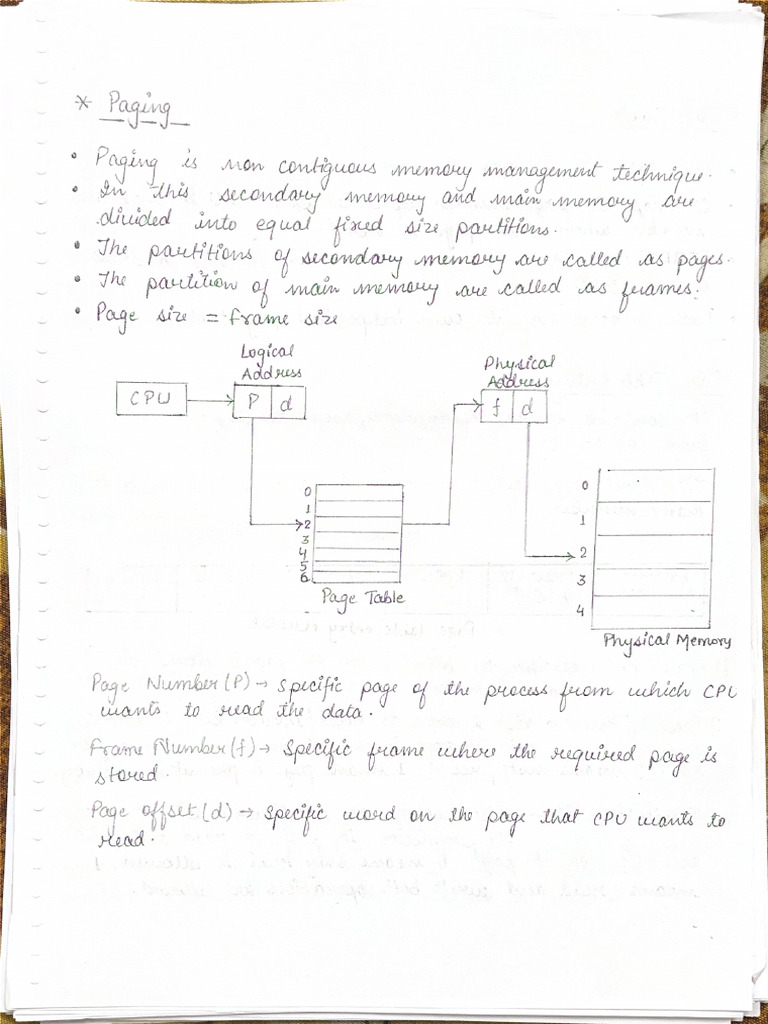 * Paging
• Paging is non contiguous memory management technique.
• In this secondary memory and main memory are
divided into equal fixed size partitions.
• The partitions of secondary memory are called as pages.
• The partition of main memory are called as frames.
• Page size = frame size
Logical
Address
Physical
Address
CPU
P d
f d
0
1
2
3
4
5
6
Page Table
0
1
2
3
4
Physical Memory
Page Number (P) → Specific page of the process from which CPU
wants to read the data.
Frame Number (f) → Specific frame where the required page is
stored
Page offset (d) → Specific word on the page that CPU wants to
read.